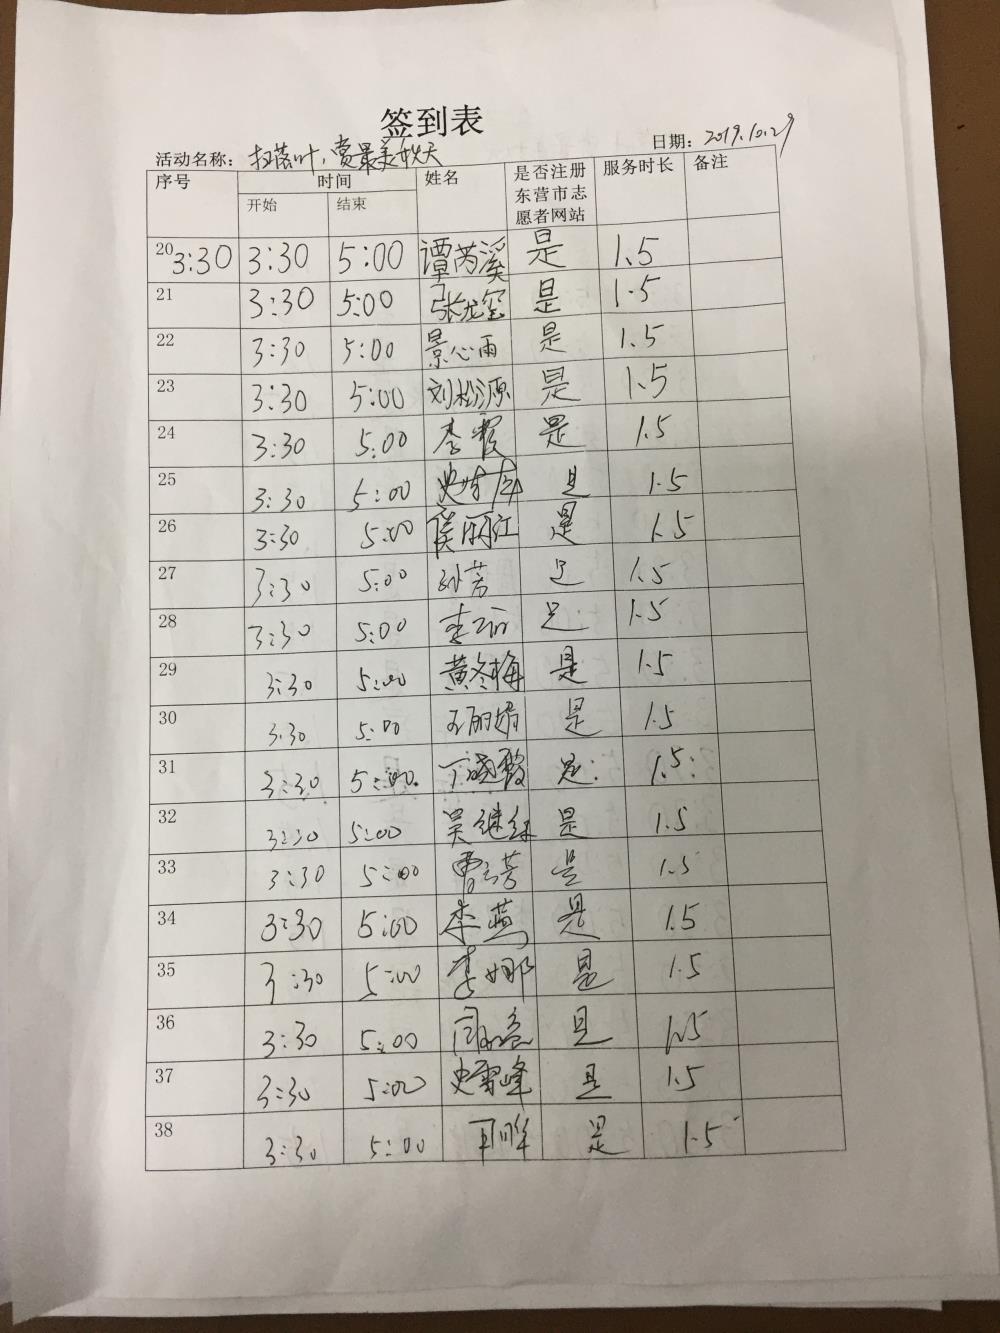 签到表
活动名称：扫落叶，赏最美秋天 日期：2019.10.29
序号 时间 姓名 是否注册东营市志愿者网站 服务时长 备注
开始 结束
20 3:30 3:30 5:00 谭芮溪 是 1.5
21 3:30 5:00 张龙玺 是 1.5
22 3:30 5:00 景心雨 是 1.5
23 3:30 5:00 刘松源 是 1.5
24 3:30 5:00 李霞 是 1.5
25 3:30 5:00 是 1.5
26 3:30 5:00 侯丽江 是 1.5
27 3:30 5:00 孙芳 是 1.5
28 3:30 5:00 是 1.5
29 3:30 5:00 黄冬梅 是 1.5
30 3:30 5:00 王丽娟 是 1.5
31 3:30 5:00 丁晓霞 是 1.5
32 3:30 5:00 吴继红 是 1.5
33 3:30 5:00 曹芳 是 1.5
34 3:30 5:00 李燕 是 1.5
35 3:30 5:00 李娜 是 1.5
36 3:30 5:00 是 1.5
37 3:30 5:00 史雷峰 是 1.5
38 3:30 5:00 是 1.5